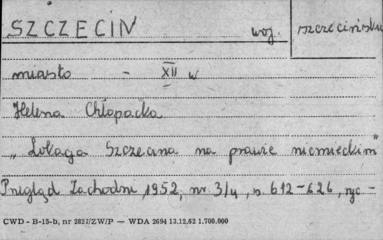 SZCZECIN woj. szczecińskie
miasto - XII w
Helena Chłopocka
„Lokacja Szczecina na prawie niemieckim"
Przegląd Zachodni, 1952, nr 3/4, s. 612-626, ryc -
CWD - B-15-b, nr 2827/ZW/P — WDA 2694 13.12.62 1.700.000